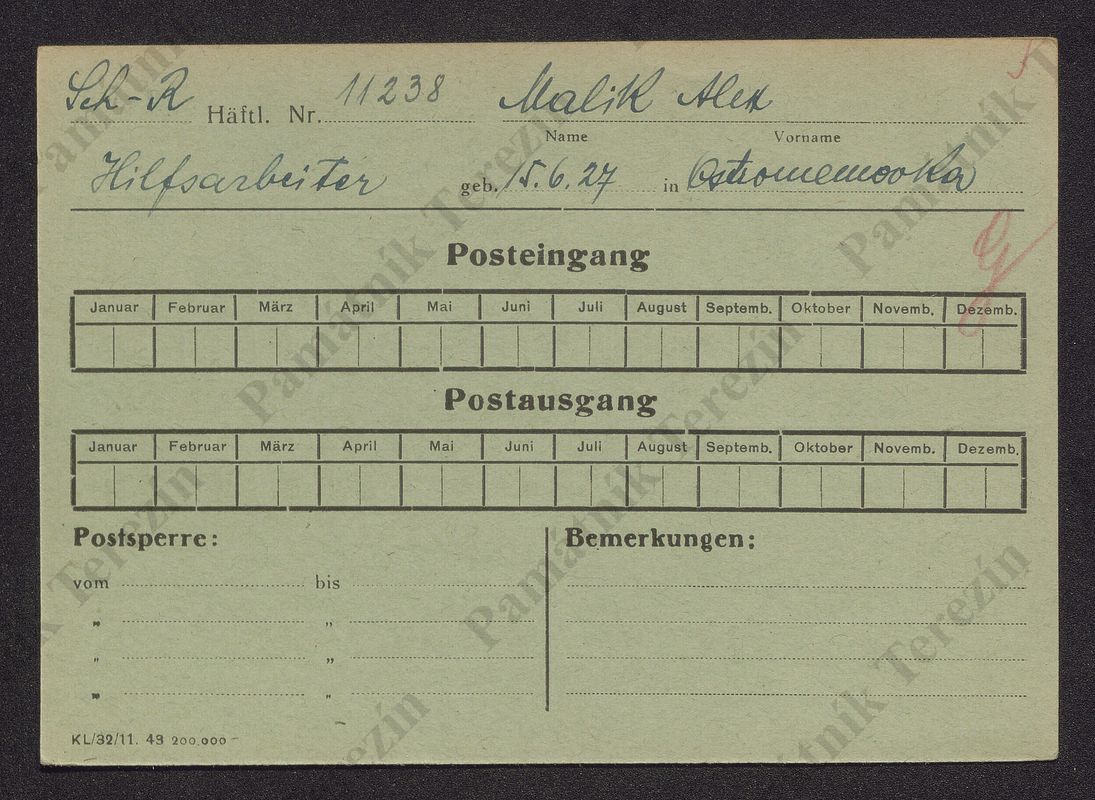 Sch-R Häftl. Nr. 11238 Malik Alex
Name Vorname
Hilfsarbeiter geb. 15.6.27 in
Posteingang
Januar Februar März April Mai Juni Juli August Septemb. Oktober Novemb. Dezemb.
Postausgang
Januar Februar März April Mai Juni Juli August Septemb. Oktober Novemb. Dezemb.
Postsperre: Bemerkungen:
vom bis
„ „
„ „
„ „
KL/32/11. 43 200.000
Památník Terezín